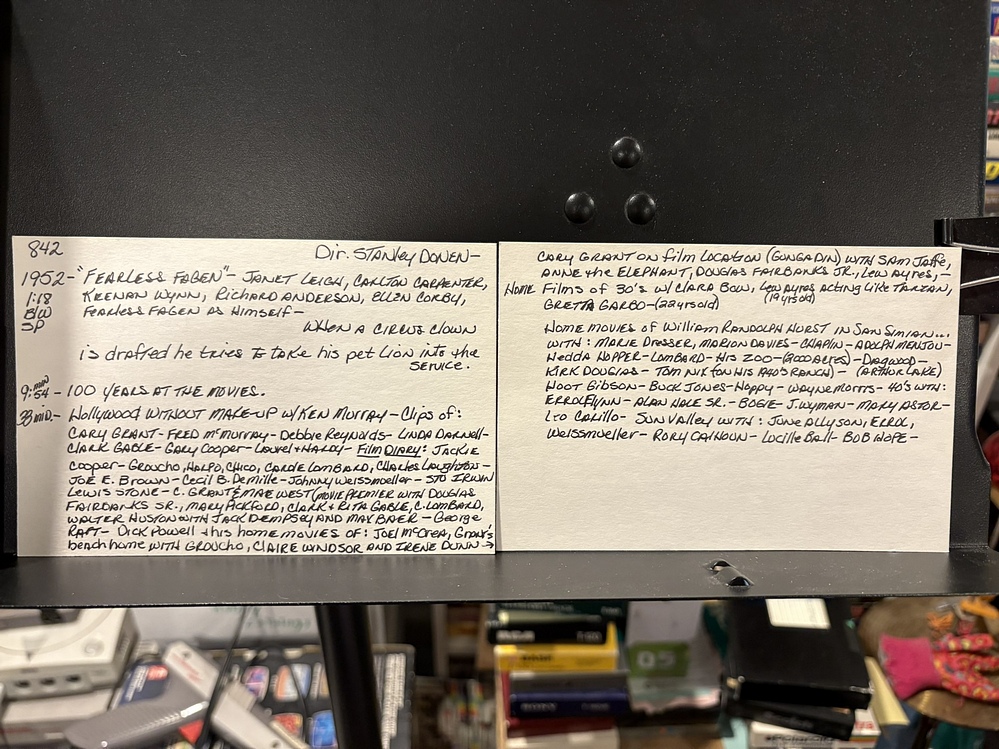 842
Dir. STANLEY DONEN-
1952- "FEARLESS FAGEN"- JANET LEIGH, CARLTON CARPENTER,
1:18 KEENAN WYNN, RICHARD ANDERSON, ELLEN CORBY,
B/W FEARLESS FAGEN AS HIMSELF-
SP
WHEN A CIRCUS CLOWN
is drafted he tries to take his pet LION into the
SERVICE.
9:54- 100 YEARS AT THE MOVIES.
38 min.- HOLLYWOOD WITHOUT MAKE-UP W/KEN MURRAY- Clips of:
CARY GRANT- FRED McMURRAY- Debbie Reynolds- LINDA DARNELL-
CLARK GABLE- GARY COOPER- Laurel & HARDY- FILM DIARY: JACKIE
COOPER- GROUCHO, HARPO, CHICO, CAROLE LOMBARD, CHARLES LAUGHTON-
JOE E. BROWN- CECIL B. DeMILLE- JOHNNY WEISSMOELLER- STU IRWIN
LEWIS STONE- C. GRANT & MAE WEST (MOVIE PREMIER WITH DOUGLAS
FAIRBANKS SR., MARY PICKFORD, CLARK & RITA GABLE, C. LOMBARD,
WALTER HUSTON WITH JACK DEMPSEY AND MAX BAER- George
RAFT- DICK POWELL & his home movies of: JOEL McCrea, Grant's
beach home WITH GROUCHO, CLAIRE WINDSOR AND IRENE DUNN →
CARY GRANT ON film LOCATION (GUNGA DIN) WITH SAM JAFFE,
ANNE the ELEPHANT, DOUGLAS FAIRBANKS JR., LEW AYRES,-
HOME FILMS of 30's W/ CLARA BOW, LEW AYRES ACTING LIKE TARZAN,
(19 yrs old)
GRETTA GARBO-(22 yrs old)
HOME MOVIES of WILLIAM RANDOLPH HURST IN SAN SIMIAN...
WITH: MARIE DRESSER, MARION DAVIES- CHAPLIN- ADOLPH MENJOU-
HEDDA HOPPER- LOMBARD- HIS ZOO-(2000 ACRES)- DAGWOOD-
(ARTHUR LAKE)
KIRK DOUGLAS- TOM MIX (ON HIS 1940'S RANCH)-
HOOT GIBSON- BUCK JONES- HOPPY- WAYNE MORRIS- 40'S WITH:
ERROL FLYNN- ALAN HALE SR.- BOGIE- J. WYMAN- MARY ASTOR-
LEO CARILLO- SUN VALLEY WITH: JUNE ALLYSON, ERROL,
WEISSMUELLER- RORY CALHOUN- LUCILLE BALL- BOB HOPE-
RCA
T-120
SONY